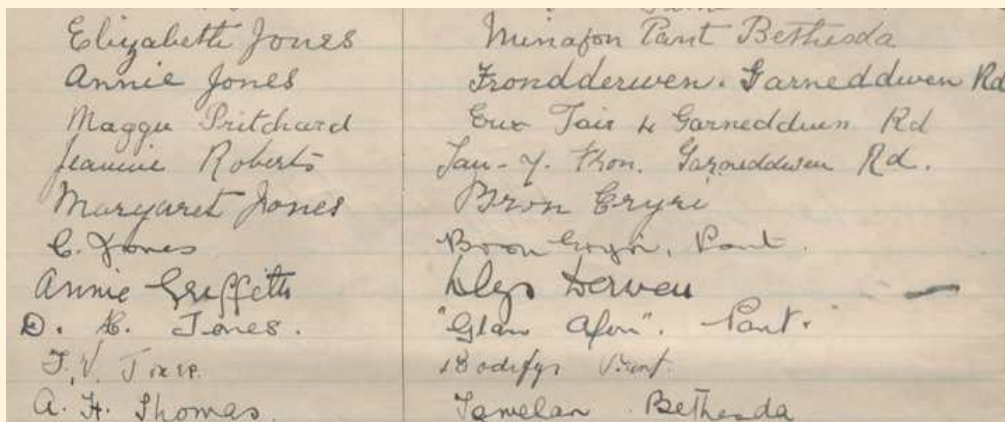 Elizabeth Jones Minafon Pant Bethesda
Annie Jones Frondderwen. Garneddwen Rd
Maggie Pritchard Erw Fair 4 Garneddwen Rd
Jeannie Roberts Tan-y-Fron. Garneddwen Rd.
Margaret Jones Bron Eryri
C. Jones Bron Eryri, Pant.
Annie Griffith Llys Derwen
D. C. Jones. "Glan Afon". Pant.
Bodifyr Pant.
A. H. Thomas. Tawelan Bethesda